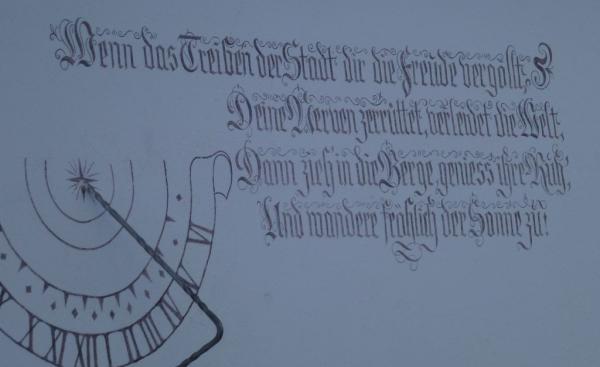 Wenn das Treiben der Stadt dir die Freude vergällt,
Deine Nerven zerrüttet, verleidet die Welt,
Dann zieh in die Berge, geniess ihre Ruh,
Und wandere fröhlich der Sonne zu!
X XI XII I II III